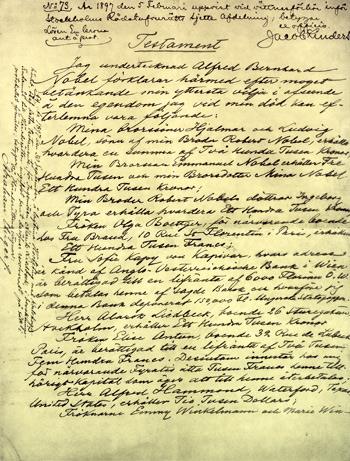 No 73. År 1897 den 5 Februari uppvist vid vittnesförhör inför
Stockholms Rådstufvurätt sjette Afdelning; betygar
Ex officio.
Testament
Jag undertecknad Alfred Bernhard
Nobel förklarar härmed efter moget
betänkande min yttersta vilja i afseende
å den egendom jag vid min död kan ef-
terlemna vara följande:
Mina Brorsöner Hjalmar och Ludvig
Nobel, söner af min Broder Robert Nobel, erhålla
hvardera en summa af Två Hundra Tusen Kronor;
Min Brorson Emmanuel Nobel erhåller Tre
Hundra Tusen och min Brorsdotter Mina Nobel
Ett Hundra Tusen Kronor;
Min Broder Robert Nobels döttrar Ingeborg
och Tyra erhålla hvardera Ett Hundra Tusen Kronor;
Fröken Olga Boettger, för närvarande boende
hos Fru Brand, 10 Rue St Florentin i Paris, erhåller
Ett Hundra Tusen Francs;
Fru Sofie Kapy von Kapivar, hvars adress
är känd af Anglo-Oesterreichische Bank i Wien
är berättigad till en lifränta af 6000 Florins Ö.W.
som betalas henne af sagde Bank och hvarför jag
i denna Bank deponerat 150,000 Fl. i Ungerska Statspapper;
Herr Alarik Liedbeck, boende 26 Sturegatan,
Stockholm, erhåller Ett Hundra Tusen Kronor;
Fröken Elise Antun, boende 32 Rue de Lubeck,
Paris, är berättigad till en lifränta af Två Tusen
Fem Hundra Francs. Dessutom innestår hos mig
för närvarande Fyratio åtta Tusen Francs henne till-
hörigt kapital som äger att till henne återbetalas;
Herr Alfred Hammond, Waterford, Texas,
United States, erhåller Tio Tusen Dollars;
Fröknarne Emmy Winkelmann och Marie Win-